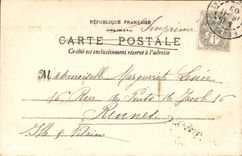 RÉPUBLIQUE FRANÇAISE
Imprimé
CARTE POSTALE
Ce côté est exclusivement réservé à l'adresse
Mademoiselle Marguerite
16 Rue du Puits de Jacob 16
Rennes
Ille & Vilaine